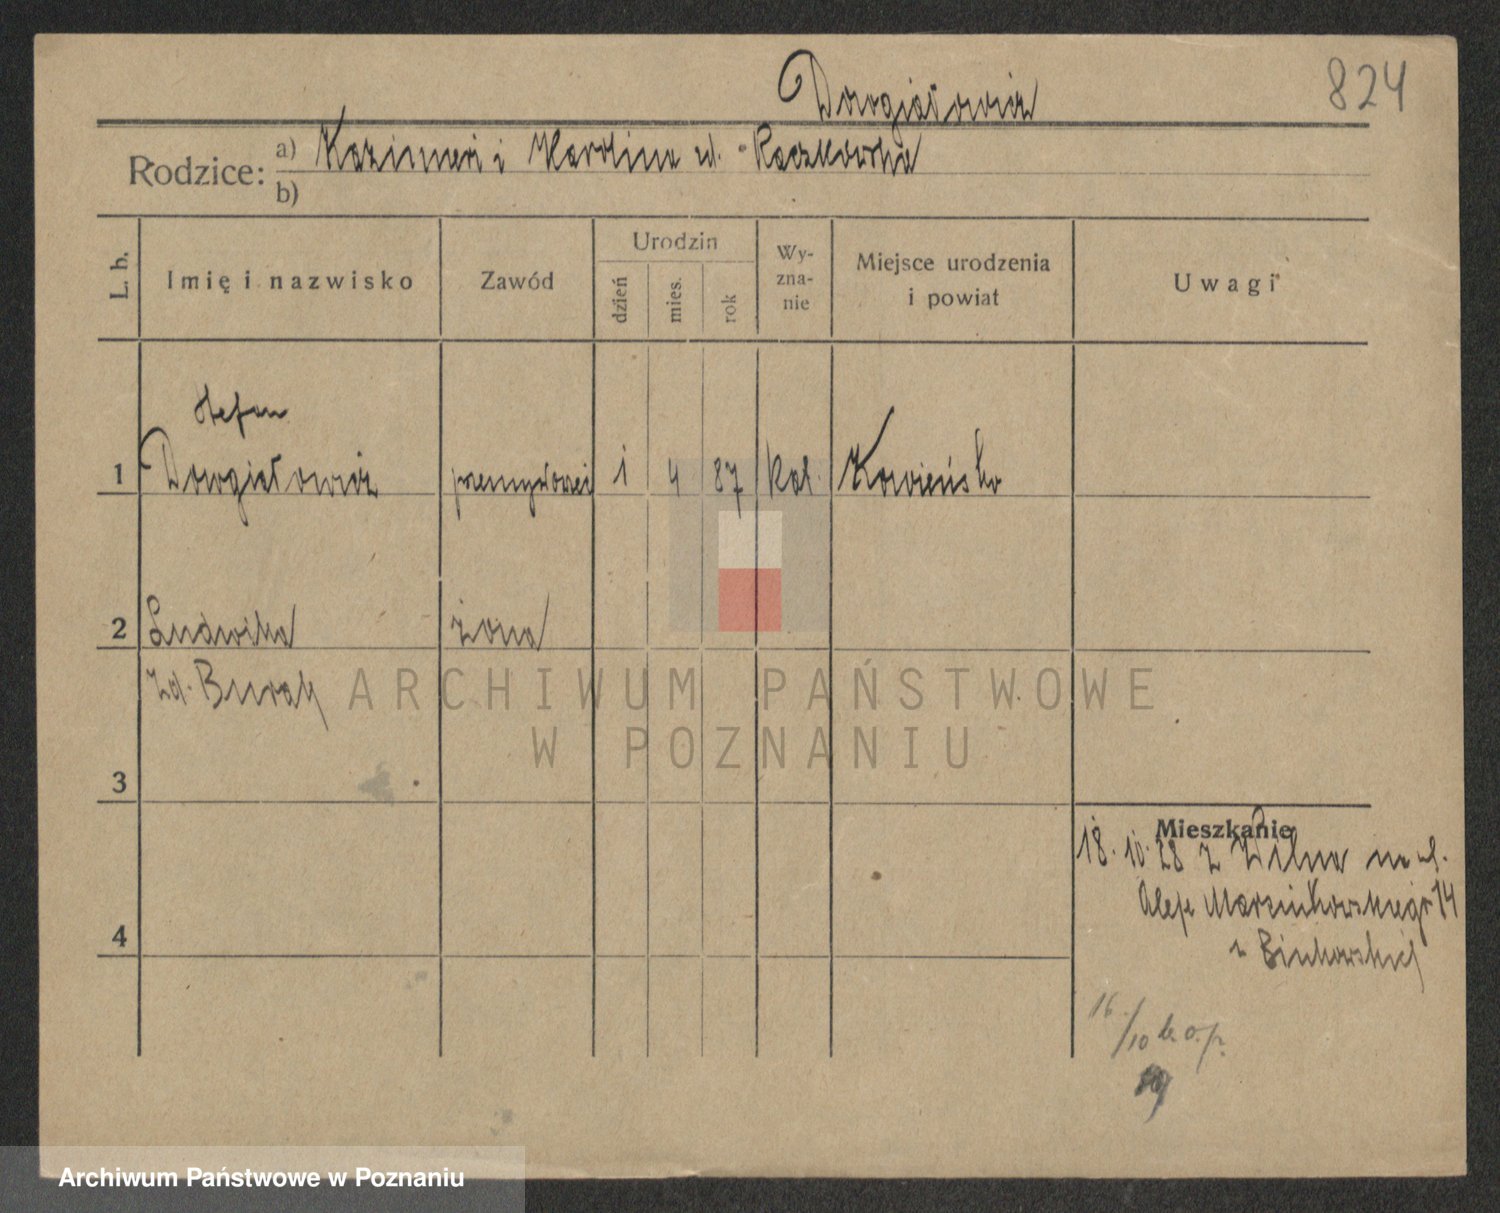 824
Dowgiałowicz
Rodzice: a) Kazimierz i Karolina ur. Raczkowska
b)
L. b.
Imię i nazwisko
Zawód
Urodzin
dzień
mies.
rok
Wy-
zna-
nie
Miejsce urodzenia
i powiat
Uwagi
Stefan
1 Dowgiałowicz przemysłowiec 1 4 87 kat. Kowieńsko
2 Ludwika żona
zd.
3
4
Mieszkanie
18.10.28 z Wilna na ul.
Aleje Marcinkowskiego 14
16/10
ARCHIWUM PAŃSTWOWE
W POZNANIU
Archiwum Państwowe w Poznaniu